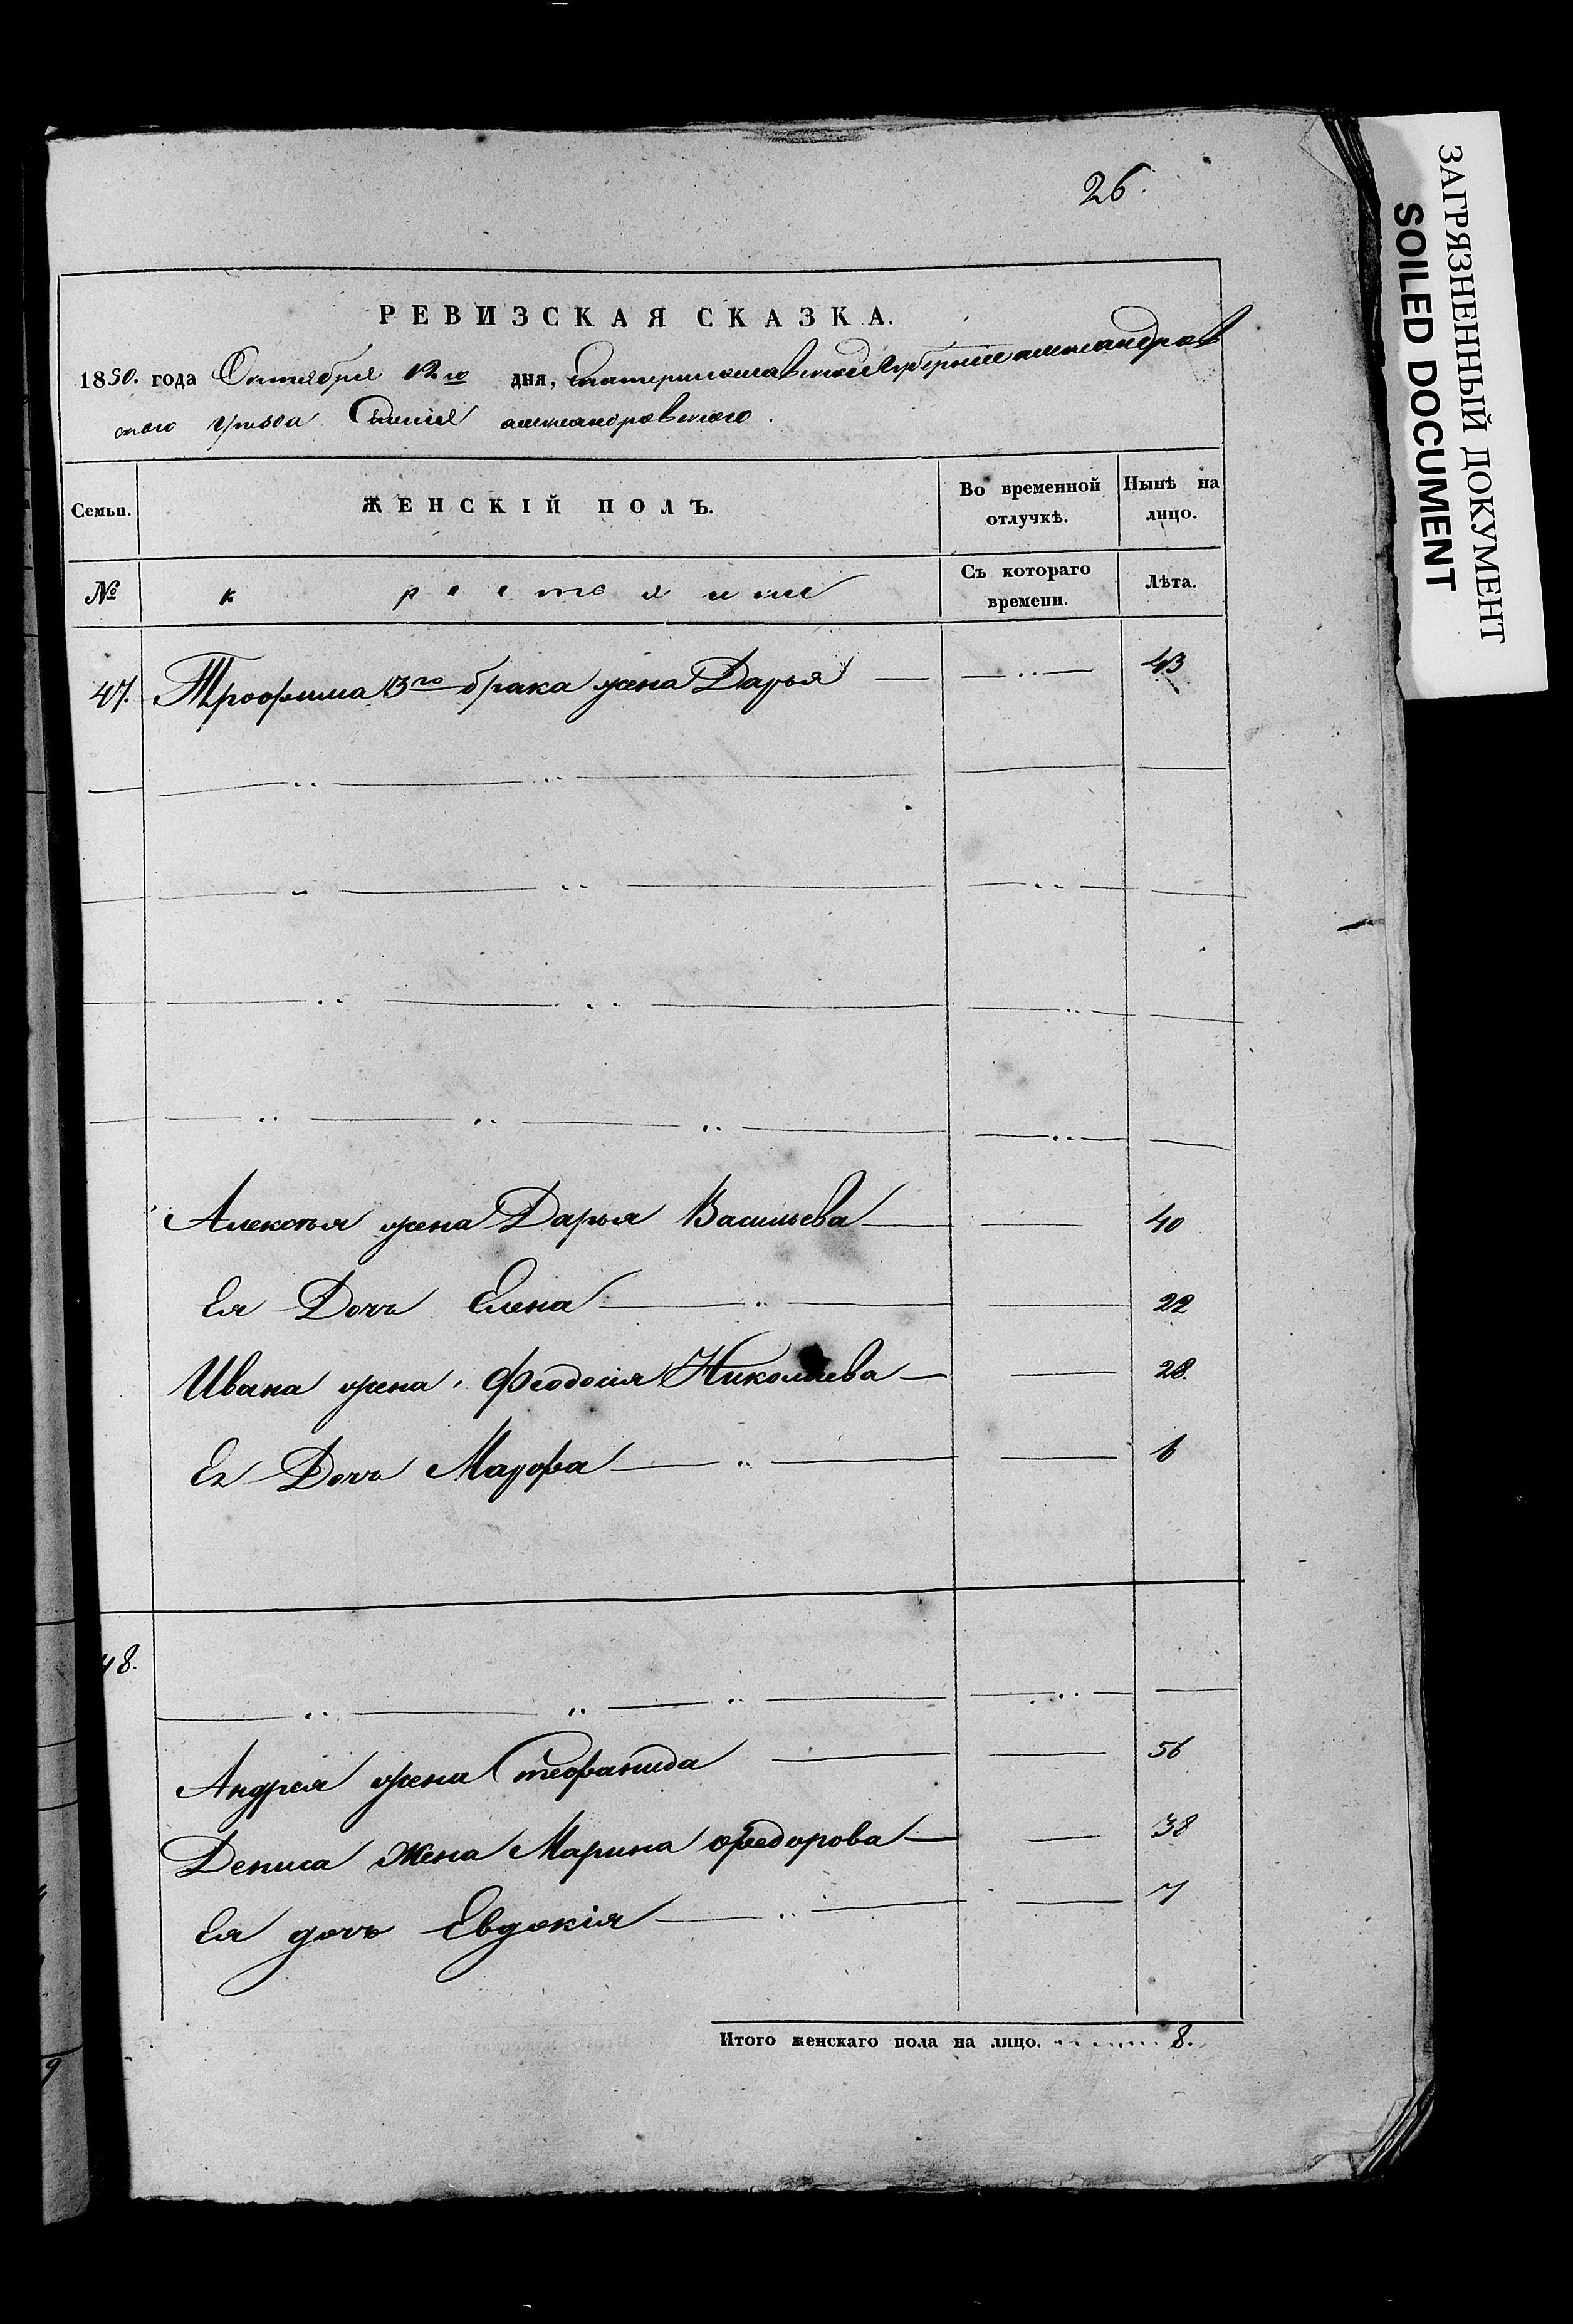 26.
РЕВИЗСКАЯ СКАЗКА.
1850. года Октября 12го дня, Екатеринославской Губернiи александров
ского уѣзда Селенiя александровского.
Семьи.
ЖЕНСКІЙ ПОЛЪ.
Во временной отлучкѣ.
Нынѣ на лицо.
№
крестьянки
Съ котораго времени.
Лѣта.
47. Трофима 3го брака жена Дарья 43
Алексѣя жена Дарья Васильева 40
Ея Дочь Елена 22
Ивана жена Феодосiя Николаева 28.
Ея Дочь Марфа 6
48.
Андрея жена Стефанида 56
Дениса жена Марина Федорова 38
Ея дочь Евдокiя 7
Итого женскаго пола на лицо. 8.
ЗАГРЯЗНЕННЫЙ ДОКУМЕНТ
SOILED DOCUMENT